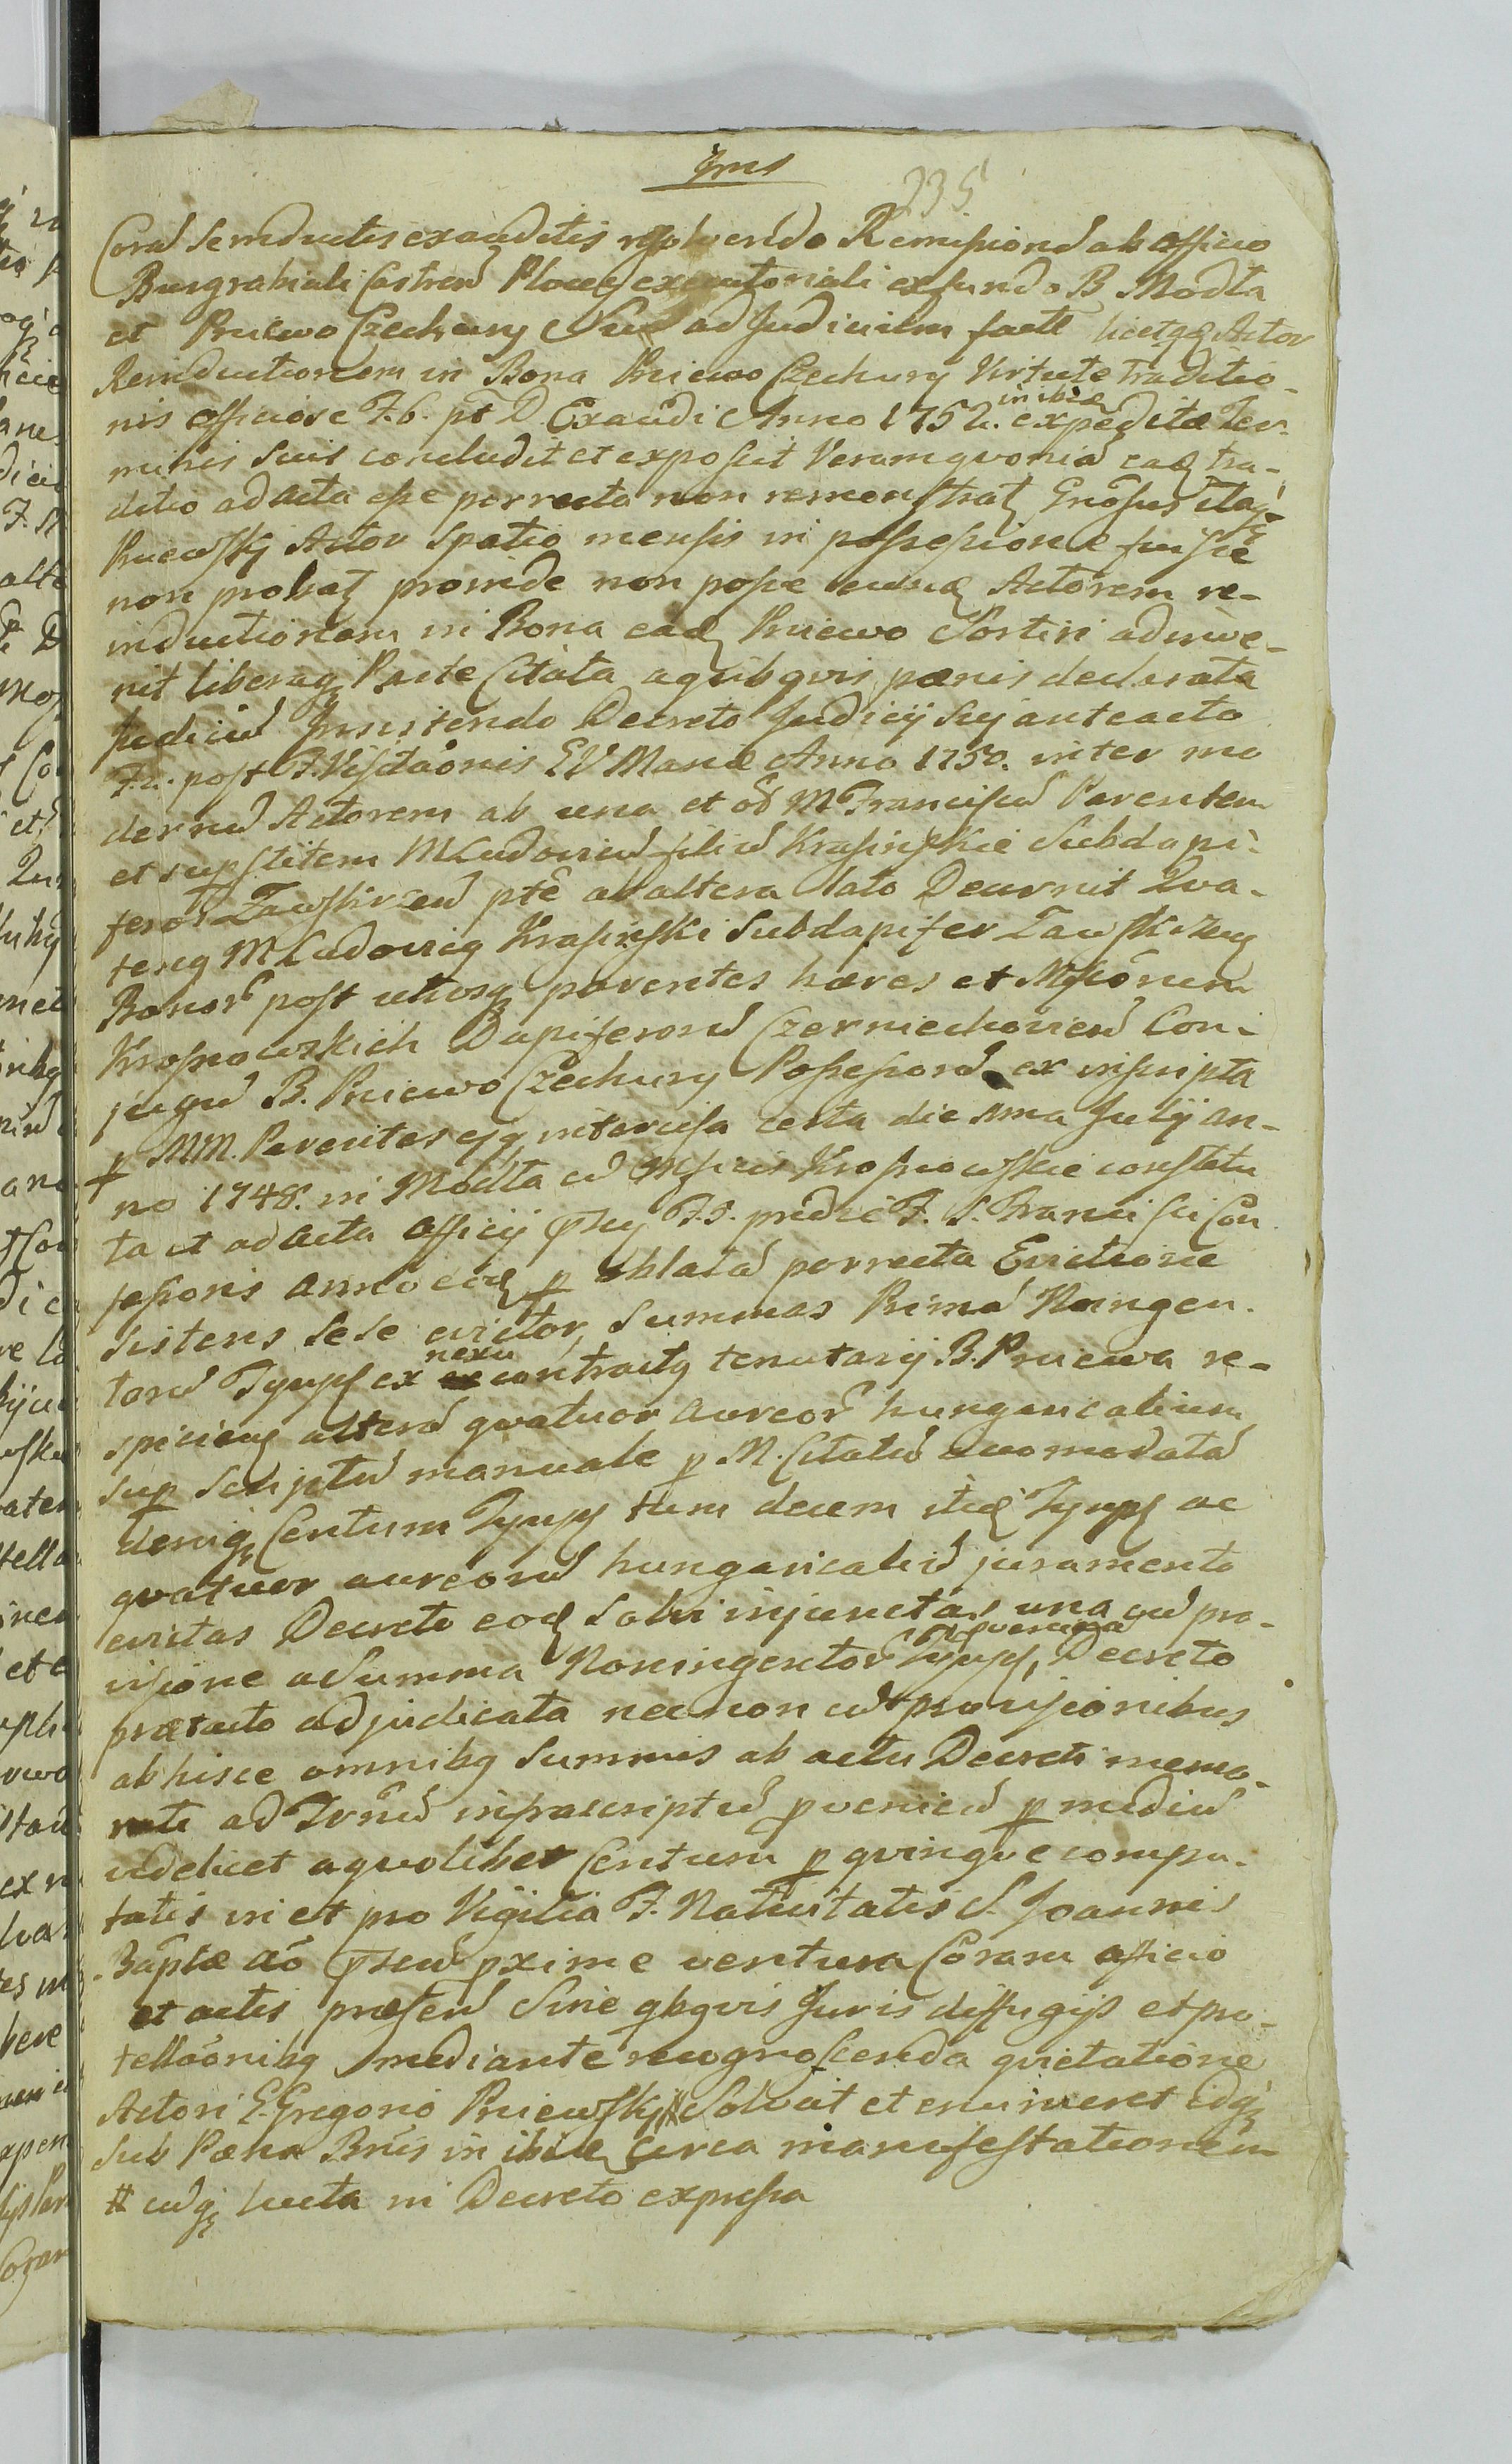 Jms
235
Corã se inductis exauditis resolvendo Remissionẽ ab officio
Burgrabiali Castreñ Plocēn executoriali ex fundo B. Modła
et Pniewo Czechury Suũ ad Judicium factã licet qd Actor
Reinductionem in Bona Pniewo Czechury Virtute traditio-
nis officiose F. 6. pt D. Exaudi Anno 1752. inibiq expeditæ Ter-
minis suis concludit et exposcit Verum quonia eadẽ tra-
ditio ad acta esse porrecta non remonstratʒ Gnosus itaq
Pniewsky Actor spatio mensis in possessione fuisse
non probatʒ proinde non posse eundẽ Actorem re-
inductionem in Bona eadẽ Pniewo sortiri adinve-
nit liberaq Parte Citata a qvibqvis pænis declarata
Judiciũ Insistendo Decreto Judicij sui anteacto
F. 2. post F. Visitaõnis BV Mariæ Anno 1750. inter mo
dernũ Actorem ab una et oð M Franciscũ Parentem
et supstitem M Ludovicũ filiũ Krasinskie Subdapi-
feros Zawskrzeñ ptẽ ab altera lato Decrevit Qva-
tenq M Ludovicq Krasinski Subdapifer Zawskrzeñ
Bonor post utrosq parentes hæres et Msicorum
Krosnowskich Dapiferorũ Czerniechovieñ Con-
jugũ B. Pniewo Czechury Possessorũ ex inscripta
p MM. Parentes ejq intercisa certa die 1ma Julij an-
no 1748. in Modła cũ Msicis Krosnowskie constitu
ta et ad acta officij pñtis F. 5. prdie F. S. Francisci Con
fessoris anno eodẽ p oblatã porrecta Evictione
sistens sese evictor, Summas Primã Noningen-
torũ Tynpf ex nexu contractq tenutarij B. Pniewa re-
spicienʒ alterã qvatuor aureor hungaricalium
sup Scriptũ manuale p M. Citatũ accomodatã
deniq Centum Tynpf tum decem itidẽ Tynpf ac
qvatuor aureorũ hungaricaliũ juramento
evictas Decreto eodẽ solvi injunctas una cũ pro-
visione a Summa Noningentor Tynpf, Decreto
prætacto adjudicata necnon cũ provisionibus
ab hisce omnibq Summis ab actu Decreti memo-
rati ad Trñũ infrascriptũ pvenieñ p mediũ
videlicet a qvolibet Centum p qvinqve compu-
tatis in et pro Vigilia F. Nativitatis S. Joannis
Baptæ aõ pñteũ pxime ventura Coram officio
et actis præsenʒ Sine qbqvis Juris diffugijs et pro-
tellaõnibq mediante recognoscenda qvietatione
Actori G. Gregorio Pniewsky # Solvat et enumeret idq
Sub Pæna Bñis inibiq circa manifestationem
# cuiq lucta in Decreto expressa